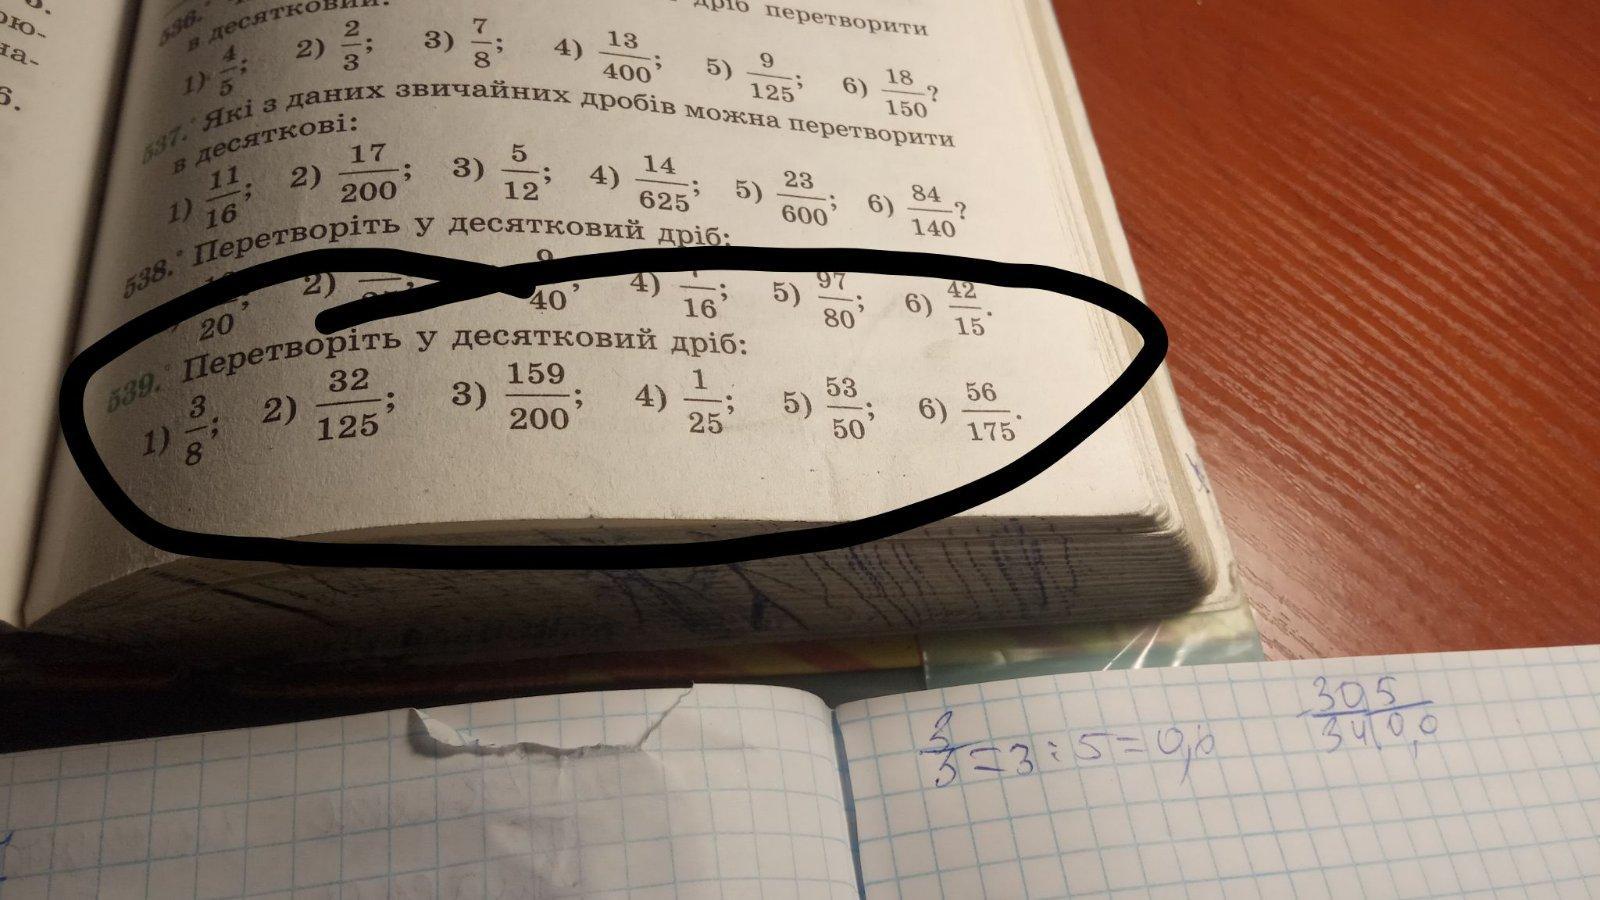 ю-
на-
6.
536.
дріб перетворити
в десятковий:
1) 4/5; 2) 2/3; 3) 7/8; 4) 13/400; 5) 9/125; 6) 18/150?
537.° Які з даних звичайних дробів можна перетворити
в десяткові:
1) 11/16; 2) 17/200; 3) 5/12; 4) 14/625; 5) 23/600; 6) 84/140?
538.° Перетворіть у десятковий дріб:
20; 2) ; 9/40; 4) 16; 5) 97/80; 6) 42/15.
539.° Перетворіть у десятковий дріб:
1) 3/8; 2) 32/125; 3) 159/200; 4) 1/25; 5) 53/50; 6) 56/175.
3/3 = 3 : 5 = 0,6